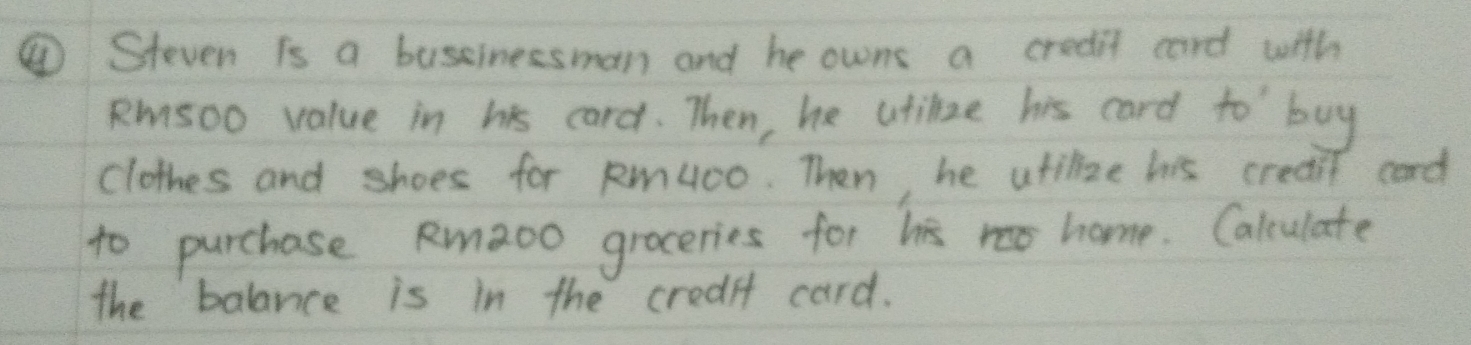 ④ Steven is a bussinessman and he owns a credit card with
RM500 value in his card. Then, he utilize his card to buy
clothes and shoes for RM400. Then, he utilize his credit card
to purchase RM200 groceries for his home. Calculate
the balance is in the credit card.